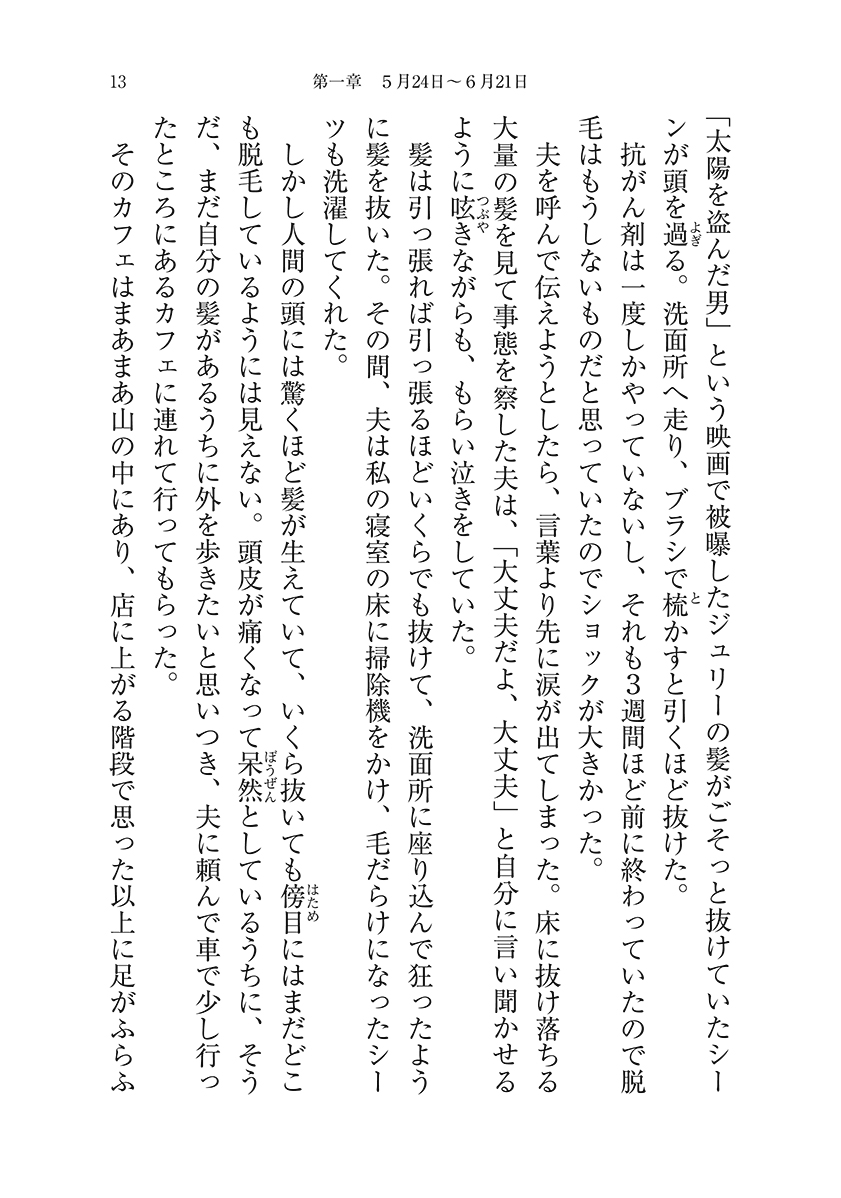 13
第一章　５月24日～６月21日
「太陽を盗んだ男」という映画で被曝したジュリーの髪がごそっと抜けていたシー
ンが頭を過る。洗面所へ走り、ブラシで梳かすと引くほど抜けた。
よぎ
と
抗がん剤は一度しかやっていないし、それも３週間ほど前に終わっていたので脱
毛はもうしないものだと思っていたのでショックが大きかった。
夫を呼んで伝えようとしたら、言葉より先に涙が出てしまった。床に抜け落ちる
大量の髪を見て事態を察した夫は、「大丈夫だよ、大丈夫」と自分に言い聞かせる
ように呟きながらも、もらい泣きをしていた。
つぶや
髪は引っ張れば引っ張るほどいくらでも抜けて、洗面所に座り込んで狂ったよう
に髪を抜いた。その間、夫は私の寝室の床に掃除機をかけ、毛だらけになったシー
ツも洗濯してくれた。
しかし人間の頭には驚くほど髪が生えていて、いくら抜いても傍目にはまだどこ
はため
も脱毛しているようには見えない。頭皮が痛くなって呆然としているうちに、そう
ぼうぜん
だ、まだ自分の髪があるうちに外を歩きたいと思いつき、夫に頼んで車で少し行っ
たところにあるカフェに連れて行ってもらった。
そのカフェはまあまあ山の中にあり、店に上がる階段で思った以上に足がふらふ